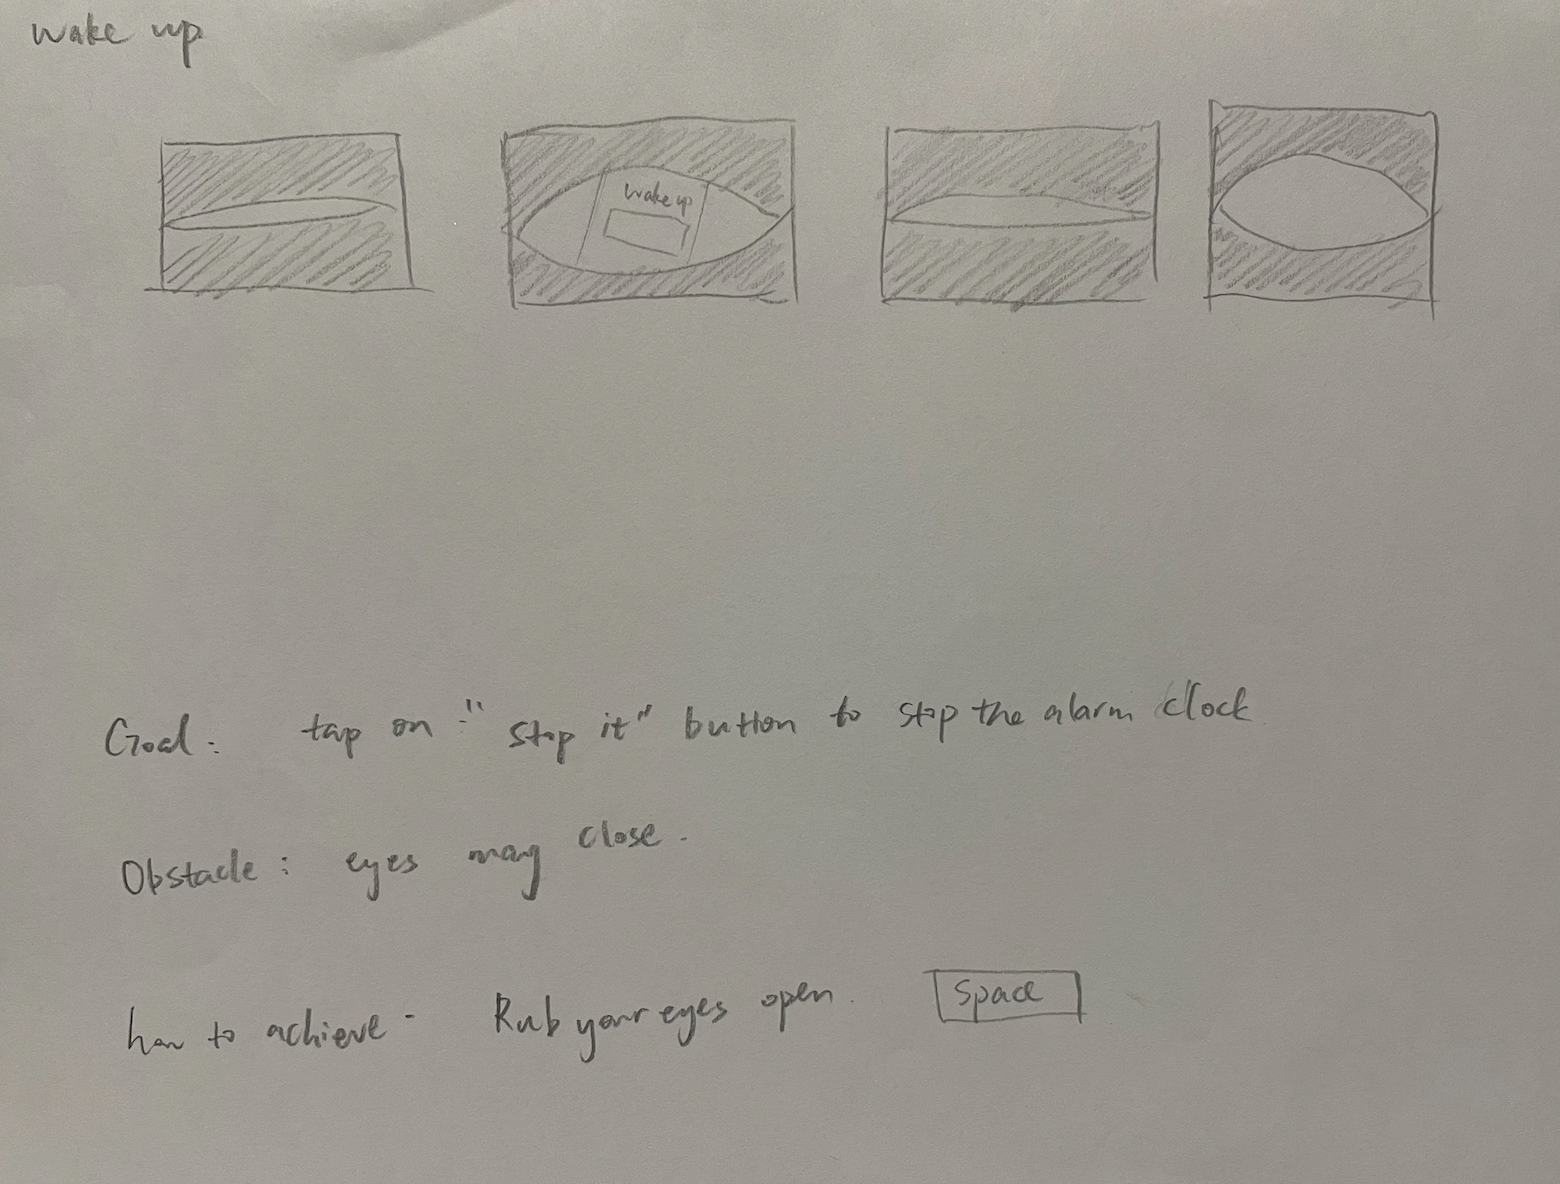 wake up
wake up
Goal: tap on "stop it" button to stop the alarm clock
Obstacle: eyes may close.
how to achieve - Rub your eyes open. Space